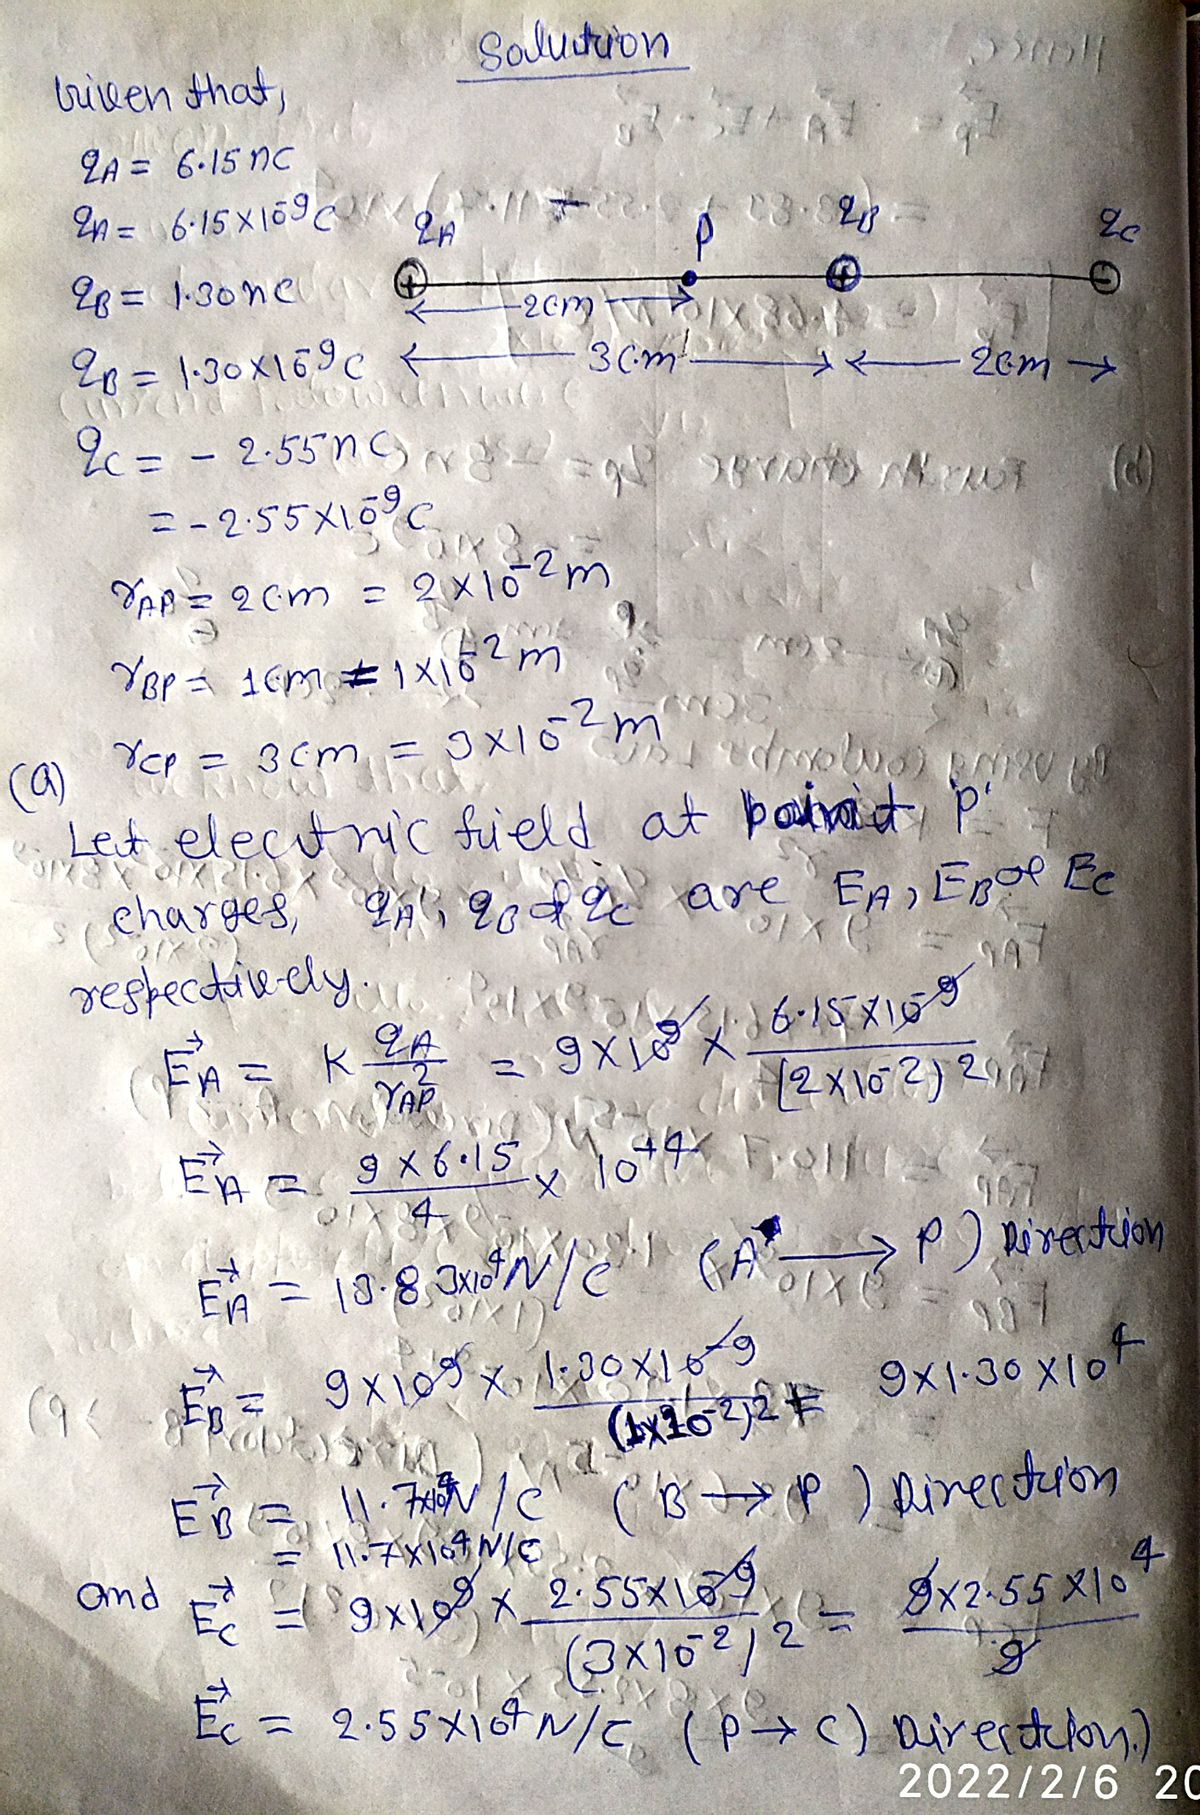 Solution
Given that,
qA = 6.15 nC
qA = 6.15×10⁻⁹C
qB = 1.30nC
qB = 1.30×10⁻⁹C
qA P qB qC
+ + −
2cm
3cm 2cm
qC = - 2.55nC
= -2.55×10⁻⁹C
rAP = 2cm = 2×10⁻²m
rBP = 1cm = 1×10⁻²m
rCP = 3cm = 3×10⁻²m
(a)
Let electric field at point P'
charges, qA, qB & qC are EA, EB & EC
respectively.
E⃗A = K qA/rAP² = 9×10⁹ × 6.15×10⁻⁹/(2×10⁻²)²
E⃗A = 9×6.15/4 × 10⁺⁴
E⃗A = 13.83×10⁴N/C (A → P) Direction
E⃗B = 9×10⁹ × 1.30×10⁻⁹/(1×10⁻²)² = 9×1.30×10⁴
E⃗B = 11.7×10⁴N/C (B → P) Direction
= 11.7×10⁴N/C
and E⃗C = 9×10⁹ × 2.55×10⁻⁹/(3×10⁻²)² = 9×2.55×10⁴/9
E⃗C = 2.55×10⁴N/C (P → C) Direction.)
2022/2/6 20